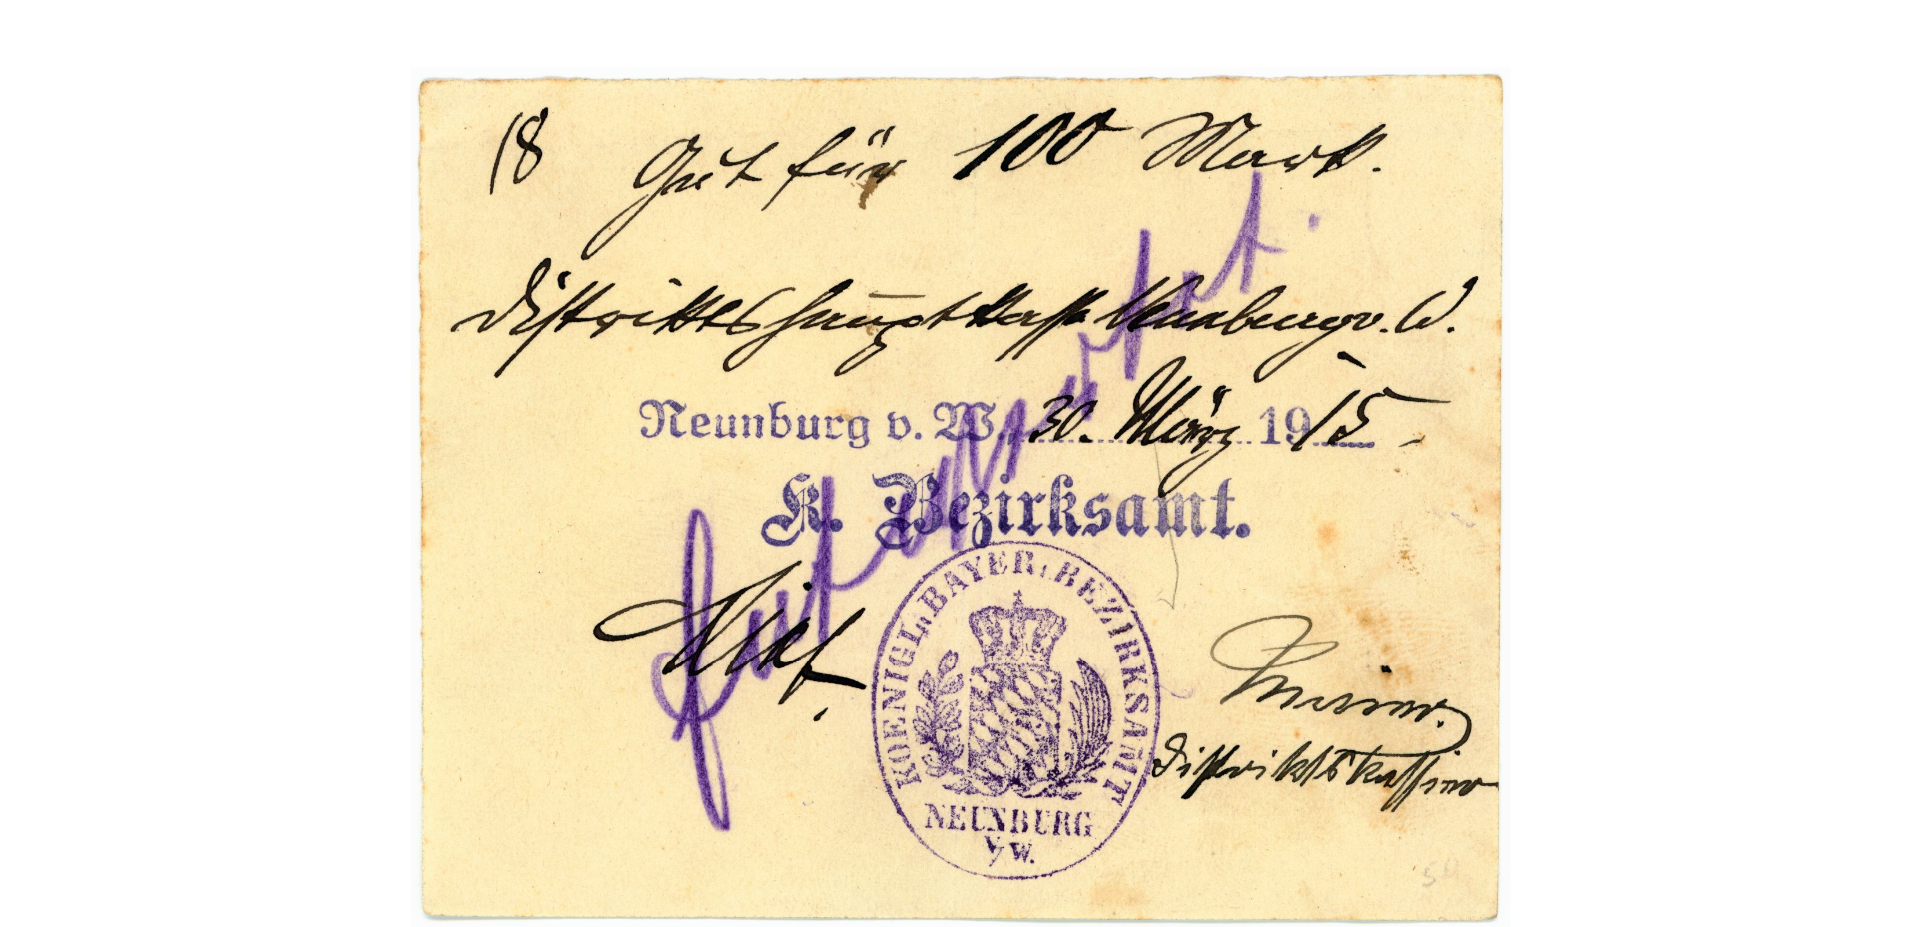 18 Gut für 100 Mark.
Distriktshauptkasse Neunburg v. W.
Neunburg v. W., 30. März 1915
K. Bezirksamt.
KOENIGL. BAYER. BEZIRKSAMT
NEUNBURG
v/W.
Distriktskassier